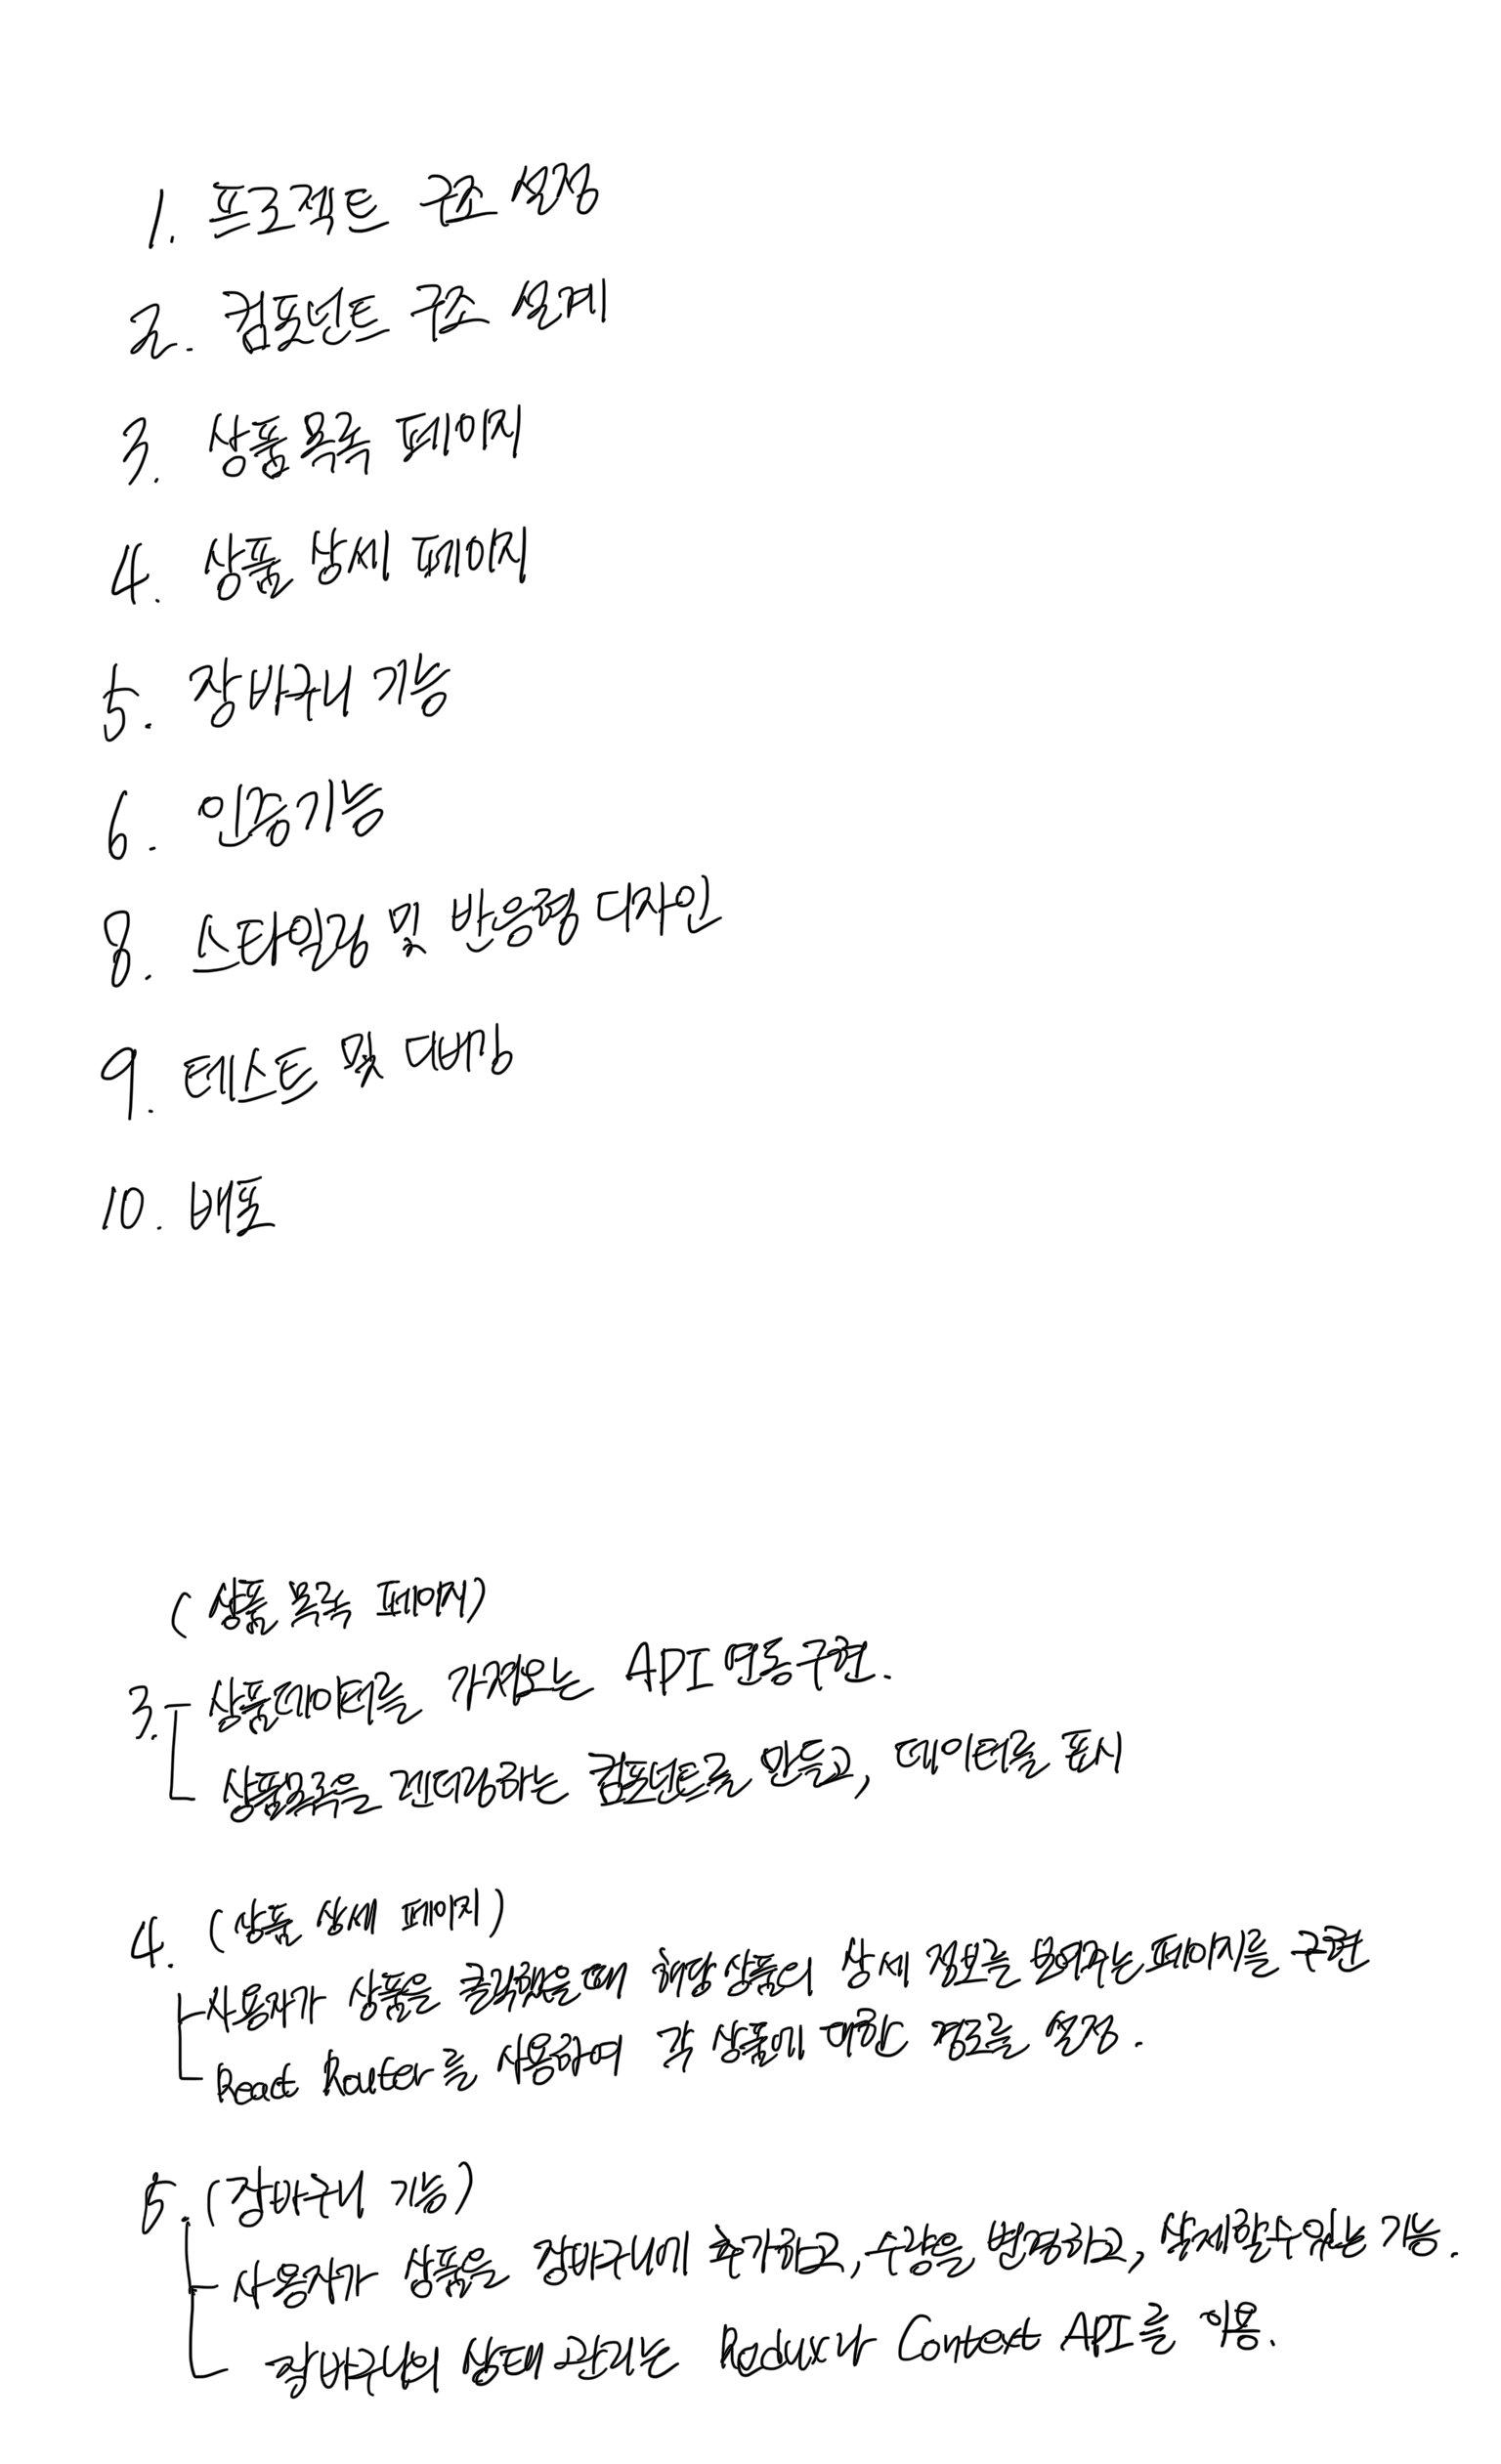 1. 프로젝트 구조 설정
2. 컴포넌트 구조 설계
3. 상품목록 페이지
4. 상품 상세 페이지
5. 장바구니 기능
6. 인증기능
8. 스타일링 및 반응형 디자인
9. 테스트 및 디버깅
10. 배포
(상품 목록 페이지)
3. 상품데이터를 가져오는 API 연동구현.
상품목록을 렌더링하는 컴포넌트를 만들고, 데이터를 표시
4. (상품 상세 페이지)
사용자가 상품을 클릭했을때 해당 상품의 상세 정보를 보여주는 페이지를 구현
React Router를 사용하여 각 상품에 대한 경로를 설정.
5. (장바구니 기능)
사용자가 상품을 장바구니에 추가하고, 수량을 변경하고, 삭제할수있는 기능.
장바구니의 상태 관리는 Redux나 Context API를 활용.